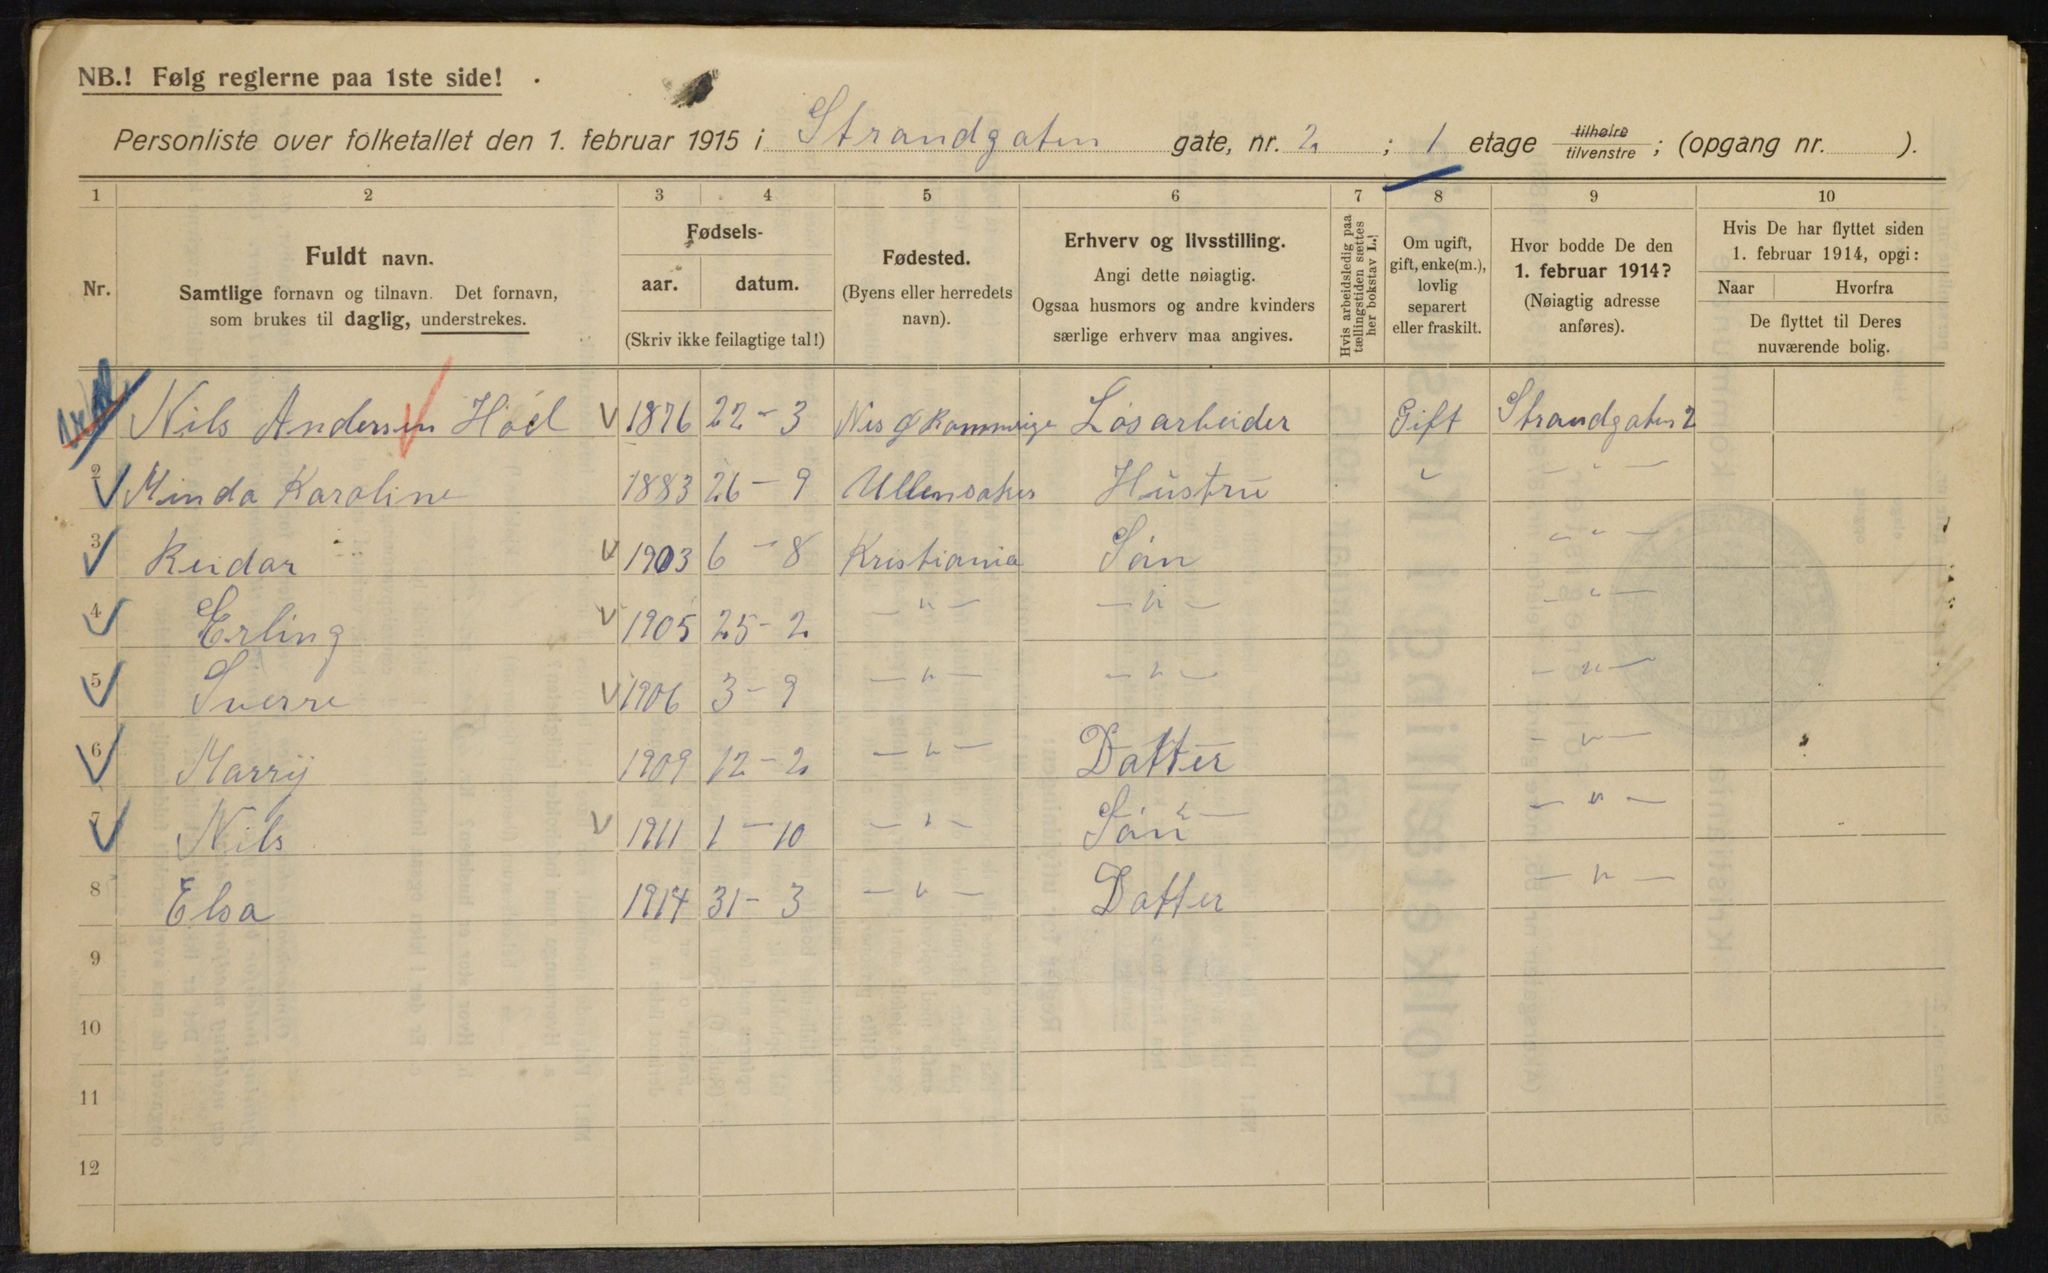 NB.! Følg reglerne paa 1ste side!
Personliste over folketallet den 1. februar 1915 i Strandgaten gate, nr. 2 ; 1 etage tilhøire tilvenstre ; (opgang nr. ).
1 2 3 4 5 6 7 8 9 10
Nr.
Fuldt navn.
Samtlige fornavn og tilnavn. Det fornavn,
som brukes til daglig, understrekes.
Fødsels-
aar. datum.
(Skriv ikke feilagtige tal!)
Fødested.
(Byens eller herredets
navn).
Erhverv og livsstilling.
Angi dette nøiagtig.
Ogsaa husmors og andre kvinders
særlige erhverv maa angives.
Hvis arbeidsledig paa
tællingstiden sættes
her bokstav L.!
Om ugift,
gift, enke(m.),
lovlig
separert
eller fraskilt.
Hvor bodde De den
1. februar 1914?
(Nøiagtig adresse
anføres).
Hvis De har flyttet siden
1. februar 1914, opgi:
Naar Hvorfra
De flyttet til Deres
nuværende bolig.
Nils Andersen Höel 1876 22 - 3 Nes Losarbeider Gift Strandgaten 2
2 Minda Karoline 1883 26 - 9 Ullensaker Hustru " — " —
3 Reidar 1903 6 - 8 Kristiania Sön — " —
4 Erling 1905 25 - 2 — " — — " — — " —
5 Sverre 1906 3 - 9 — " — — " — — " —
6 Marrij 1909 12 - 2 — " — Datter — " —
7 Nils 1911 1 - 10 — " — Sön — " —
8 Elsa 1914 31 - 3 — " — Datter — " —
9
10
11
12